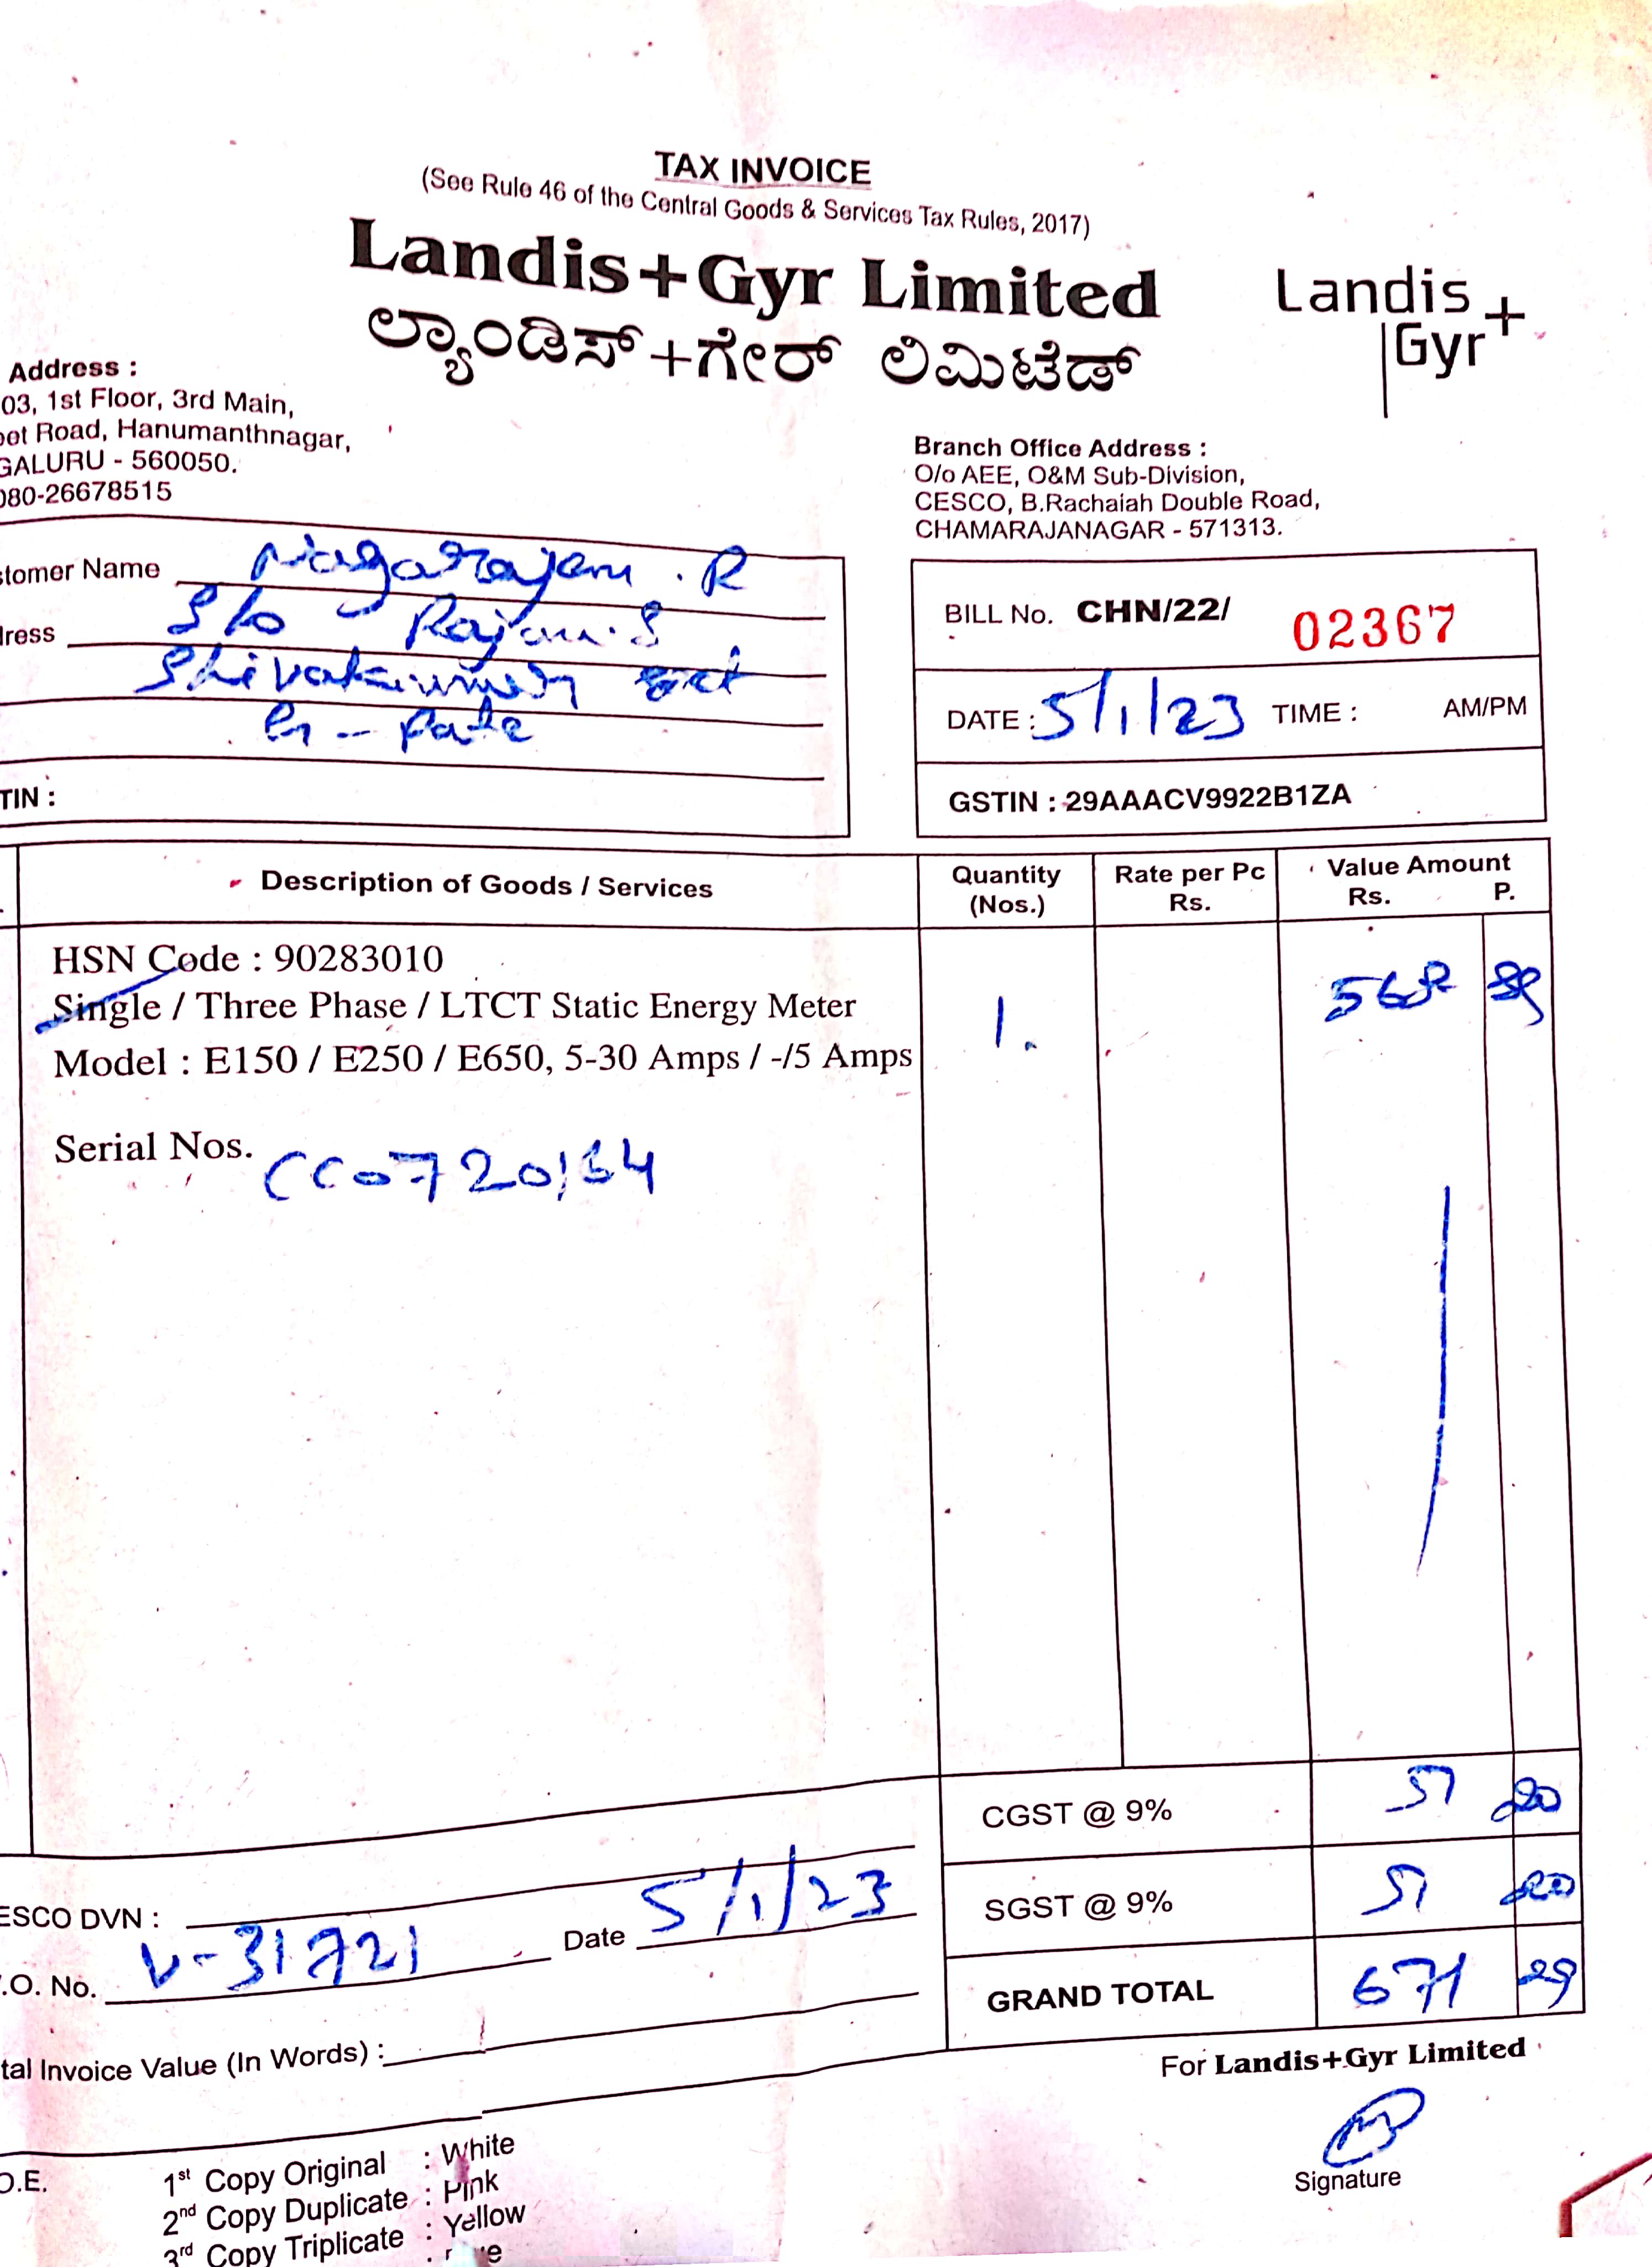 TAX INVOICE
(See Rule 46 of the Central Goods & Services Tax Rules, 2017)
Landis+Gyr Limited
ಲ್ಯಾಂಡಿಸ್+ಗೇರ್ ಲಿಮಿಟೆಡ್
Landis
Gyr+
Address :
03, 1st Floor, 3rd Main,
Road, Hanumanthnagar,
GALURU - 560050.
080-26678515
Branch Office Address :
O/o AEE, O&M Sub-Division,
CESCO, B.Rachaiah Double Road,
CHAMARAJANAGAR - 571313.
tomer Name Nagarajan . R
ress S/o Rajan.S
TIN :
BILL No. CHN/22/ 02367
DATE : 5/1/23 TIME : AM/PM
GSTIN : 29AAACV9922B1ZA
Description of Goods / Services
Quantity (Nos.)
Rate per Pc Rs.
Value Amount Rs. P.
HSN Code : 90283010
Single / Three Phase / LTCT Static Energy Meter
Model : E150 / E250 / E650, 5-30 Amps / -/5 Amps
1.
568 89
Serial Nos.
CGST @ 9% 51 20
SGST @ 9% 51 20
GRAND TOTAL 671 29
ESCO DVN :
.O. No. V-31721 Date 5/1/23
tal Invoice Value (In Words) :
For Landis+Gyr Limited
Signature
O.E.
1st Copy Original : White
2nd Copy Duplicate : Pink
3rd Copy Triplicate : Yellow